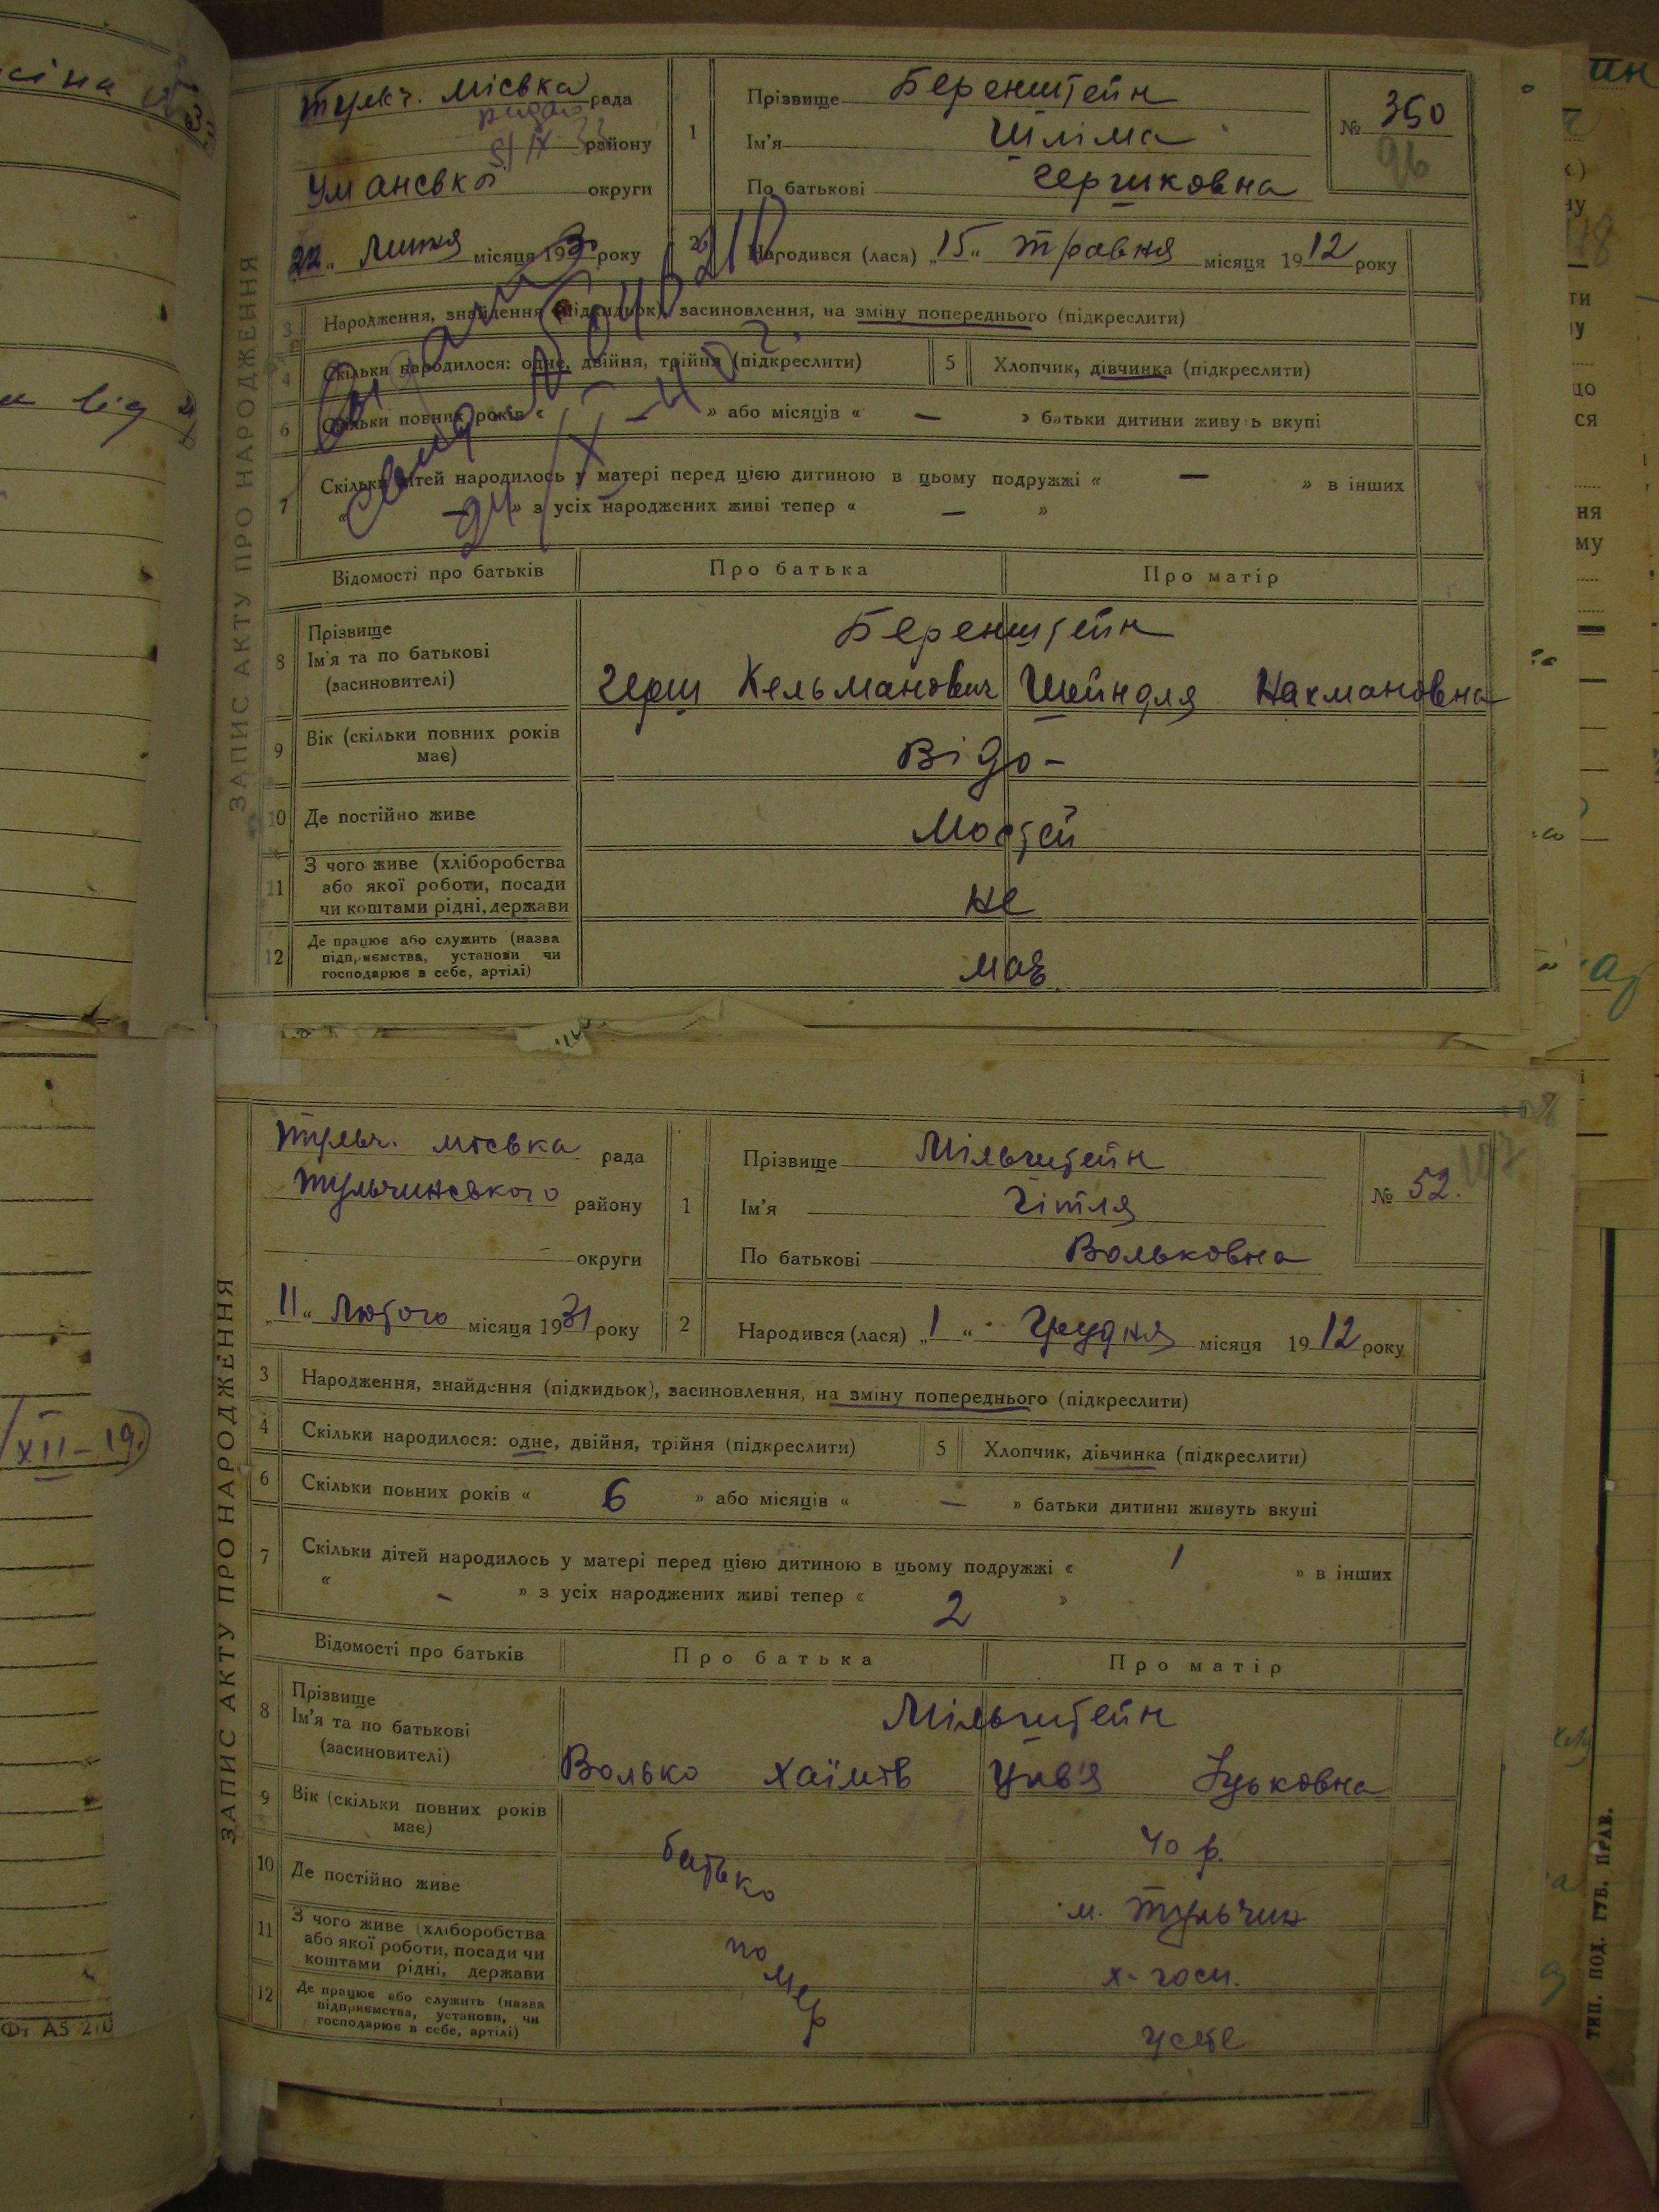 Тульч. місвка рада
району
Уманської округи
22 „ Липня місяця 193 року
1
Прізвище Беренштейн
Ім'я Шліма
По батькові Гершковна
№ 350
96
2 Народився (лася) „15“ травня місяця 1912 року
ЗАПИС АКТУ ПРО НАРОДЖЕННЯ
3 Народження, знайдення (підкидьок), засиновлення, на зміну попереднього (підкреслити)
4 Скільки народилося: одне, двійня, трійня (підкреслити)
5 Хлопчик, дівчинка (підкреслити)
6 Скільки повних років « — » або місяців « — » батьки дитини живуть вкупі
7 Скільки дітей народилось у матері перед цією дитиною в цьому подружжі « — » в інших
« — » з усіх народжених живі тепер « — »
Відомості про батьків
Про батька
Про матір
8 Прізвище
Ім'я та по батькові
(засиновителі)
Беренштейн
Герш Кельманович
Шейндля Нахмановна
9 Вік (скільки повних років
має)
Відо-
10 Де постійно живе
Мостей
11 З чого живе (хліборобства
або якої роботи, посади
чи коштами рідні, держави
не
12 Де працює або служить (назва
підприємства, установи чи
господарює в себе, артілі)
має
Тульч. міська рада
Тульчинського району
— округи
„11“ Лютого місяця 1931 року
1
Прізвище Мільштейн
Ім'я Гітля
По батькові Вольковна
№ 52.
2 Народився (лася) „1“ Грудня місяця 1912 року
ЗАПИС АКТУ ПРО НАРОДЖЕННЯ
3 Народження, знайдення (підкидьок), засиновлення, на зміну попереднього (підкреслити)
4 Скільки народилося: одне, двійня, трійня (підкреслити)
5 Хлопчик, дівчинка (підкреслити)
6 Скільки повних років « 6 » або місяців « — » батьки дитини живуть вкупі
7 Скільки дітей народилось у матері перед цією дитиною в цьому подружжі « 1 » в інших
« - » з усіх народжених живі тепер « 2 »
Відомості про батьків
Про батька
Про матір
8 Прізвище
Ім'я та по батькові
(засиновителі)
Мільштейн
Волько Хаїмів
Цив'я Іуьковна
9 Вік (скільки повних років
має)
40 р.
10 Де постійно живе
м. Тульчин
батько
помер
11 З чого живе (хліборобства
або якої роботи, посади чи
коштами рідні, держави
х-госп.
12 Де працює або служить (назва
підприємства, установи, чи
господарює в себе, артілі)
у себе
XII-19
Фт А5 210
ТИП. ПОД. ГУБ. ПРАВ.